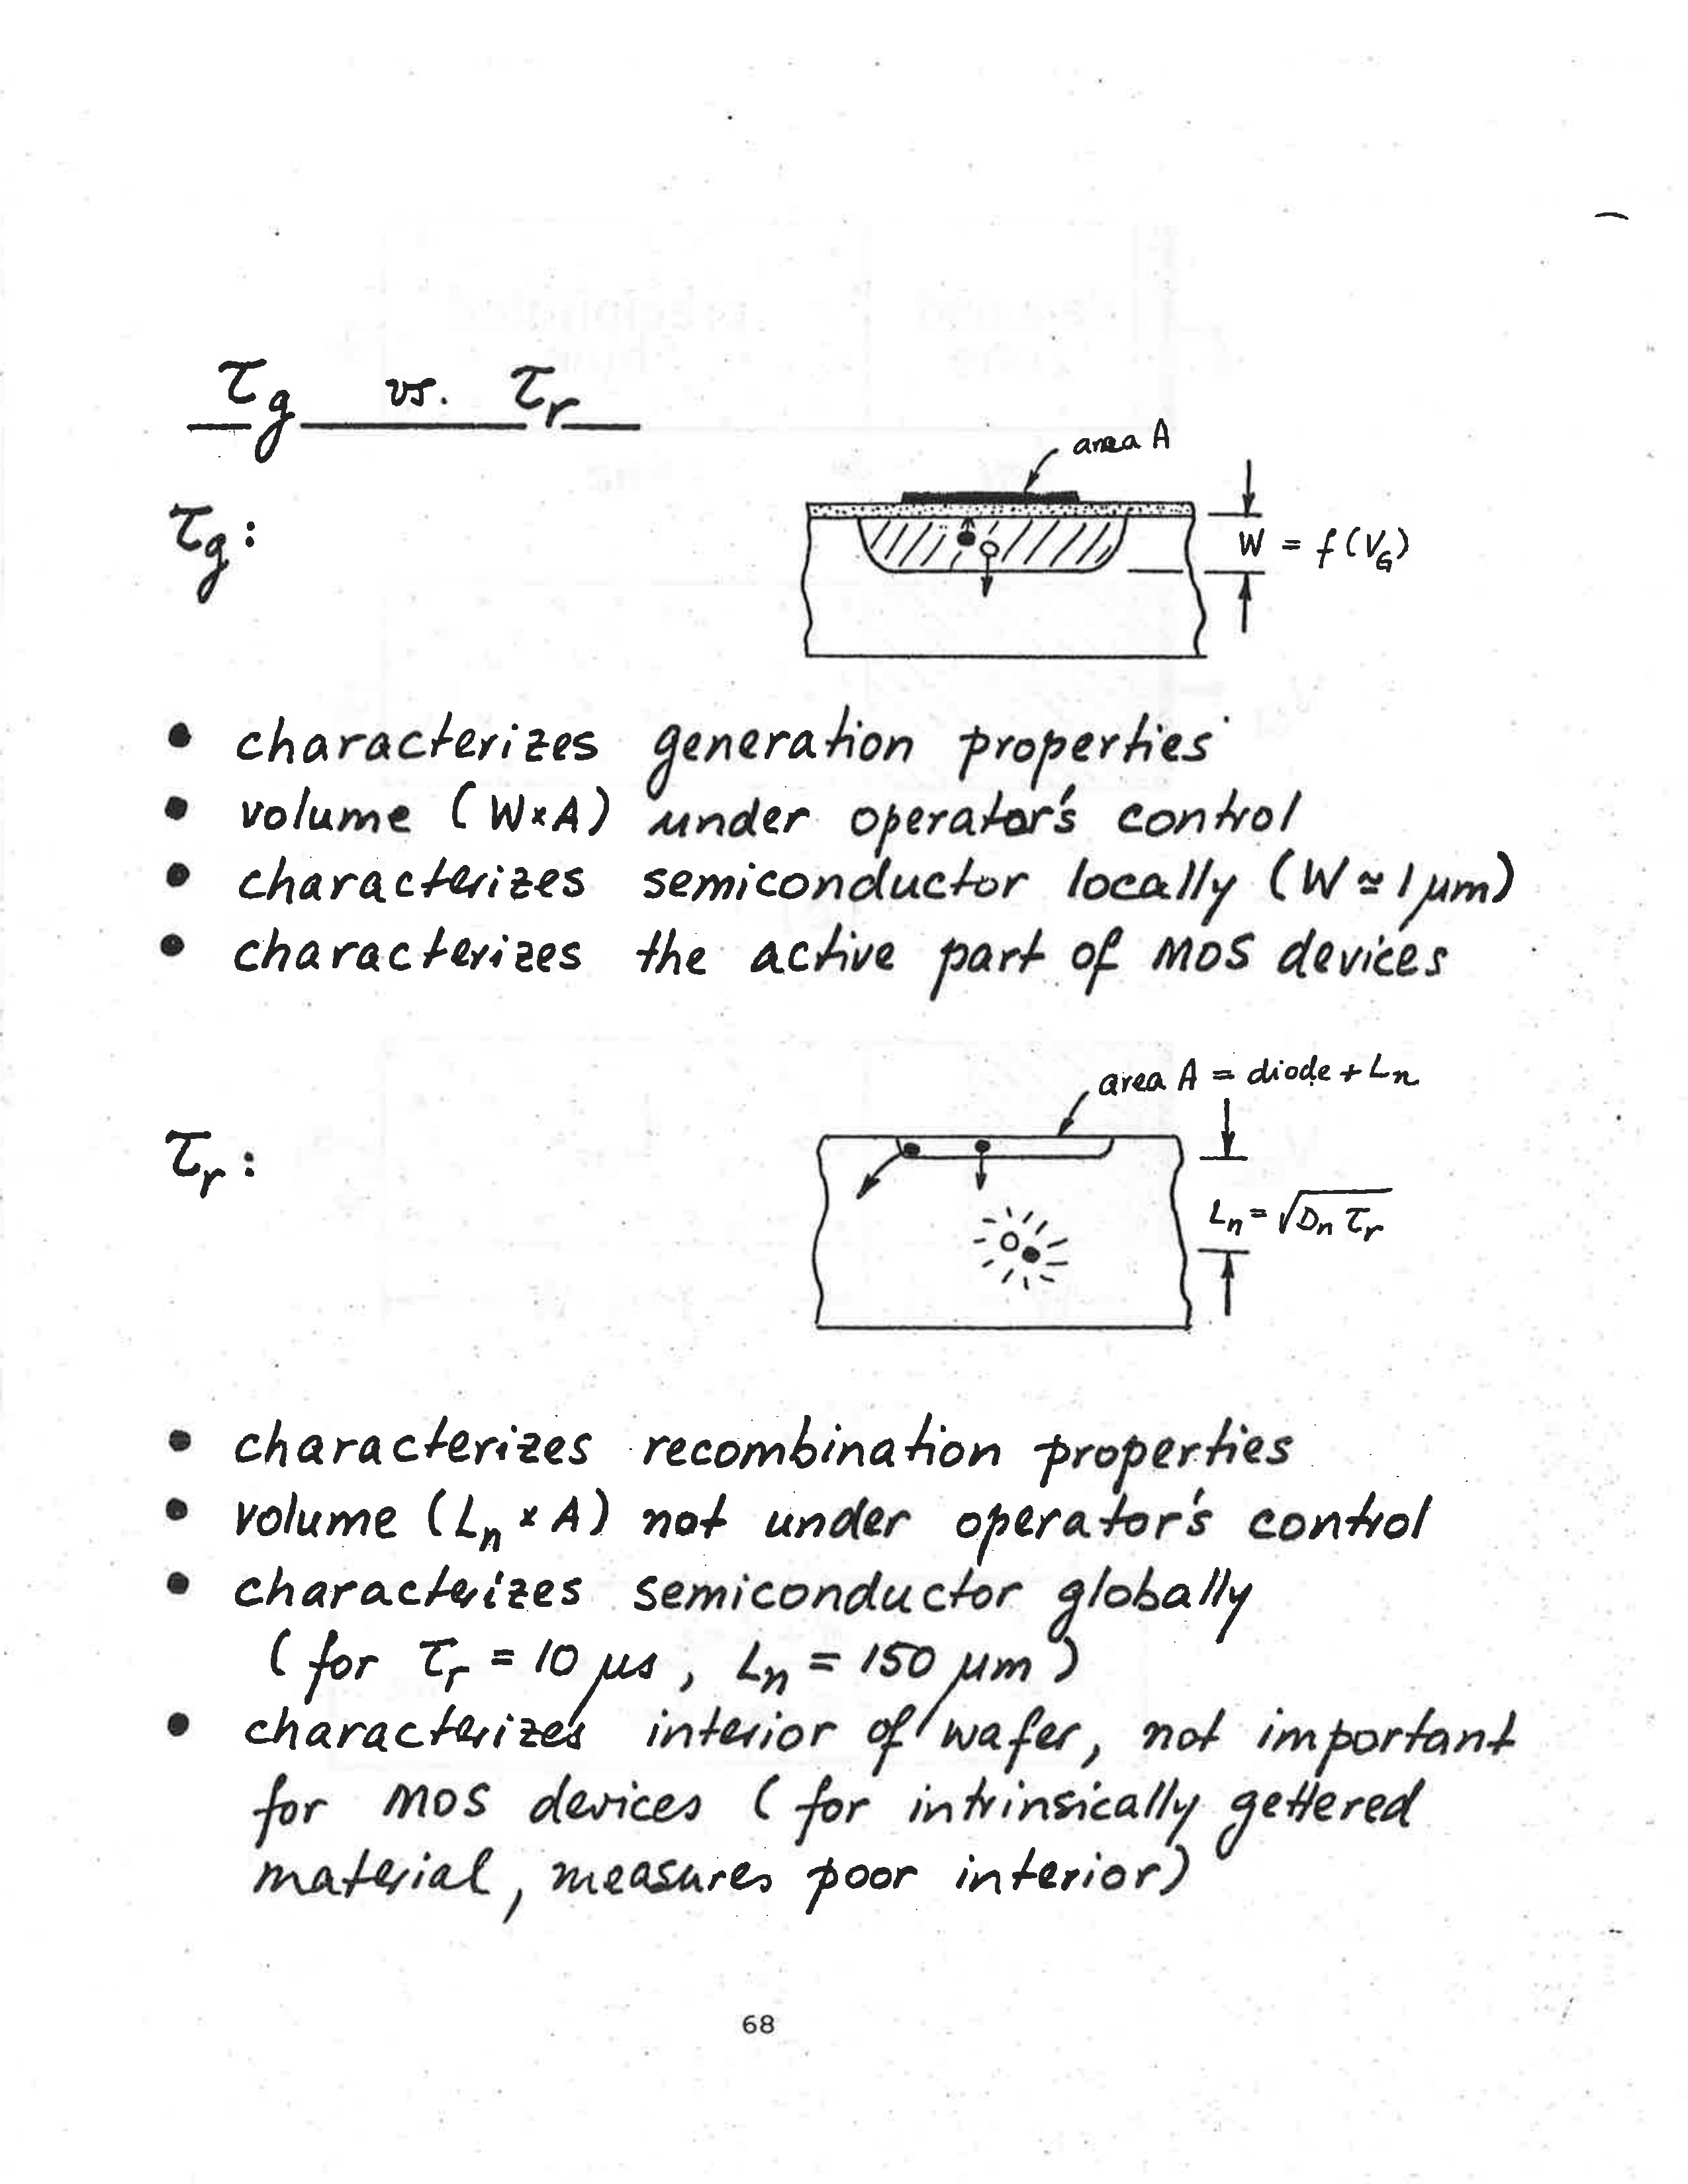 τg vs. τr
area A
τg:
W = f(VG)
• characterizes generation properties
• volume (W×A) under operator's control
• characterizes semiconductor locally (W ≃ 1 μm)
• characterizes the active part of MOS devices
area A = diode + Ln
τr:
Ln = √Dn τr
• characterizes recombination properties
• volume (Ln × A) not under operator's control
• characterizes semiconductor globally
(for τr = 10 μs, Ln = 150 μm)
• characterizes interior of wafer, not important
for MOS devices (for intrinsically gettered
material, measures poor interior)
68